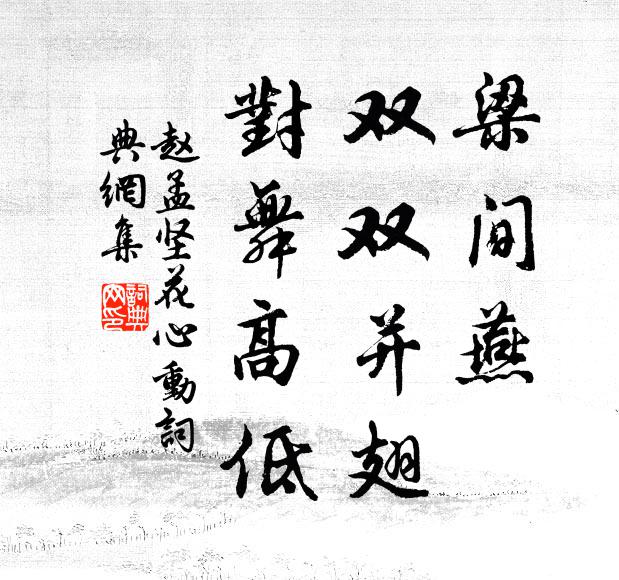 梁间燕
双双并翅
對舞高低
赵孟坚花心動詞
典網集
詞典網印